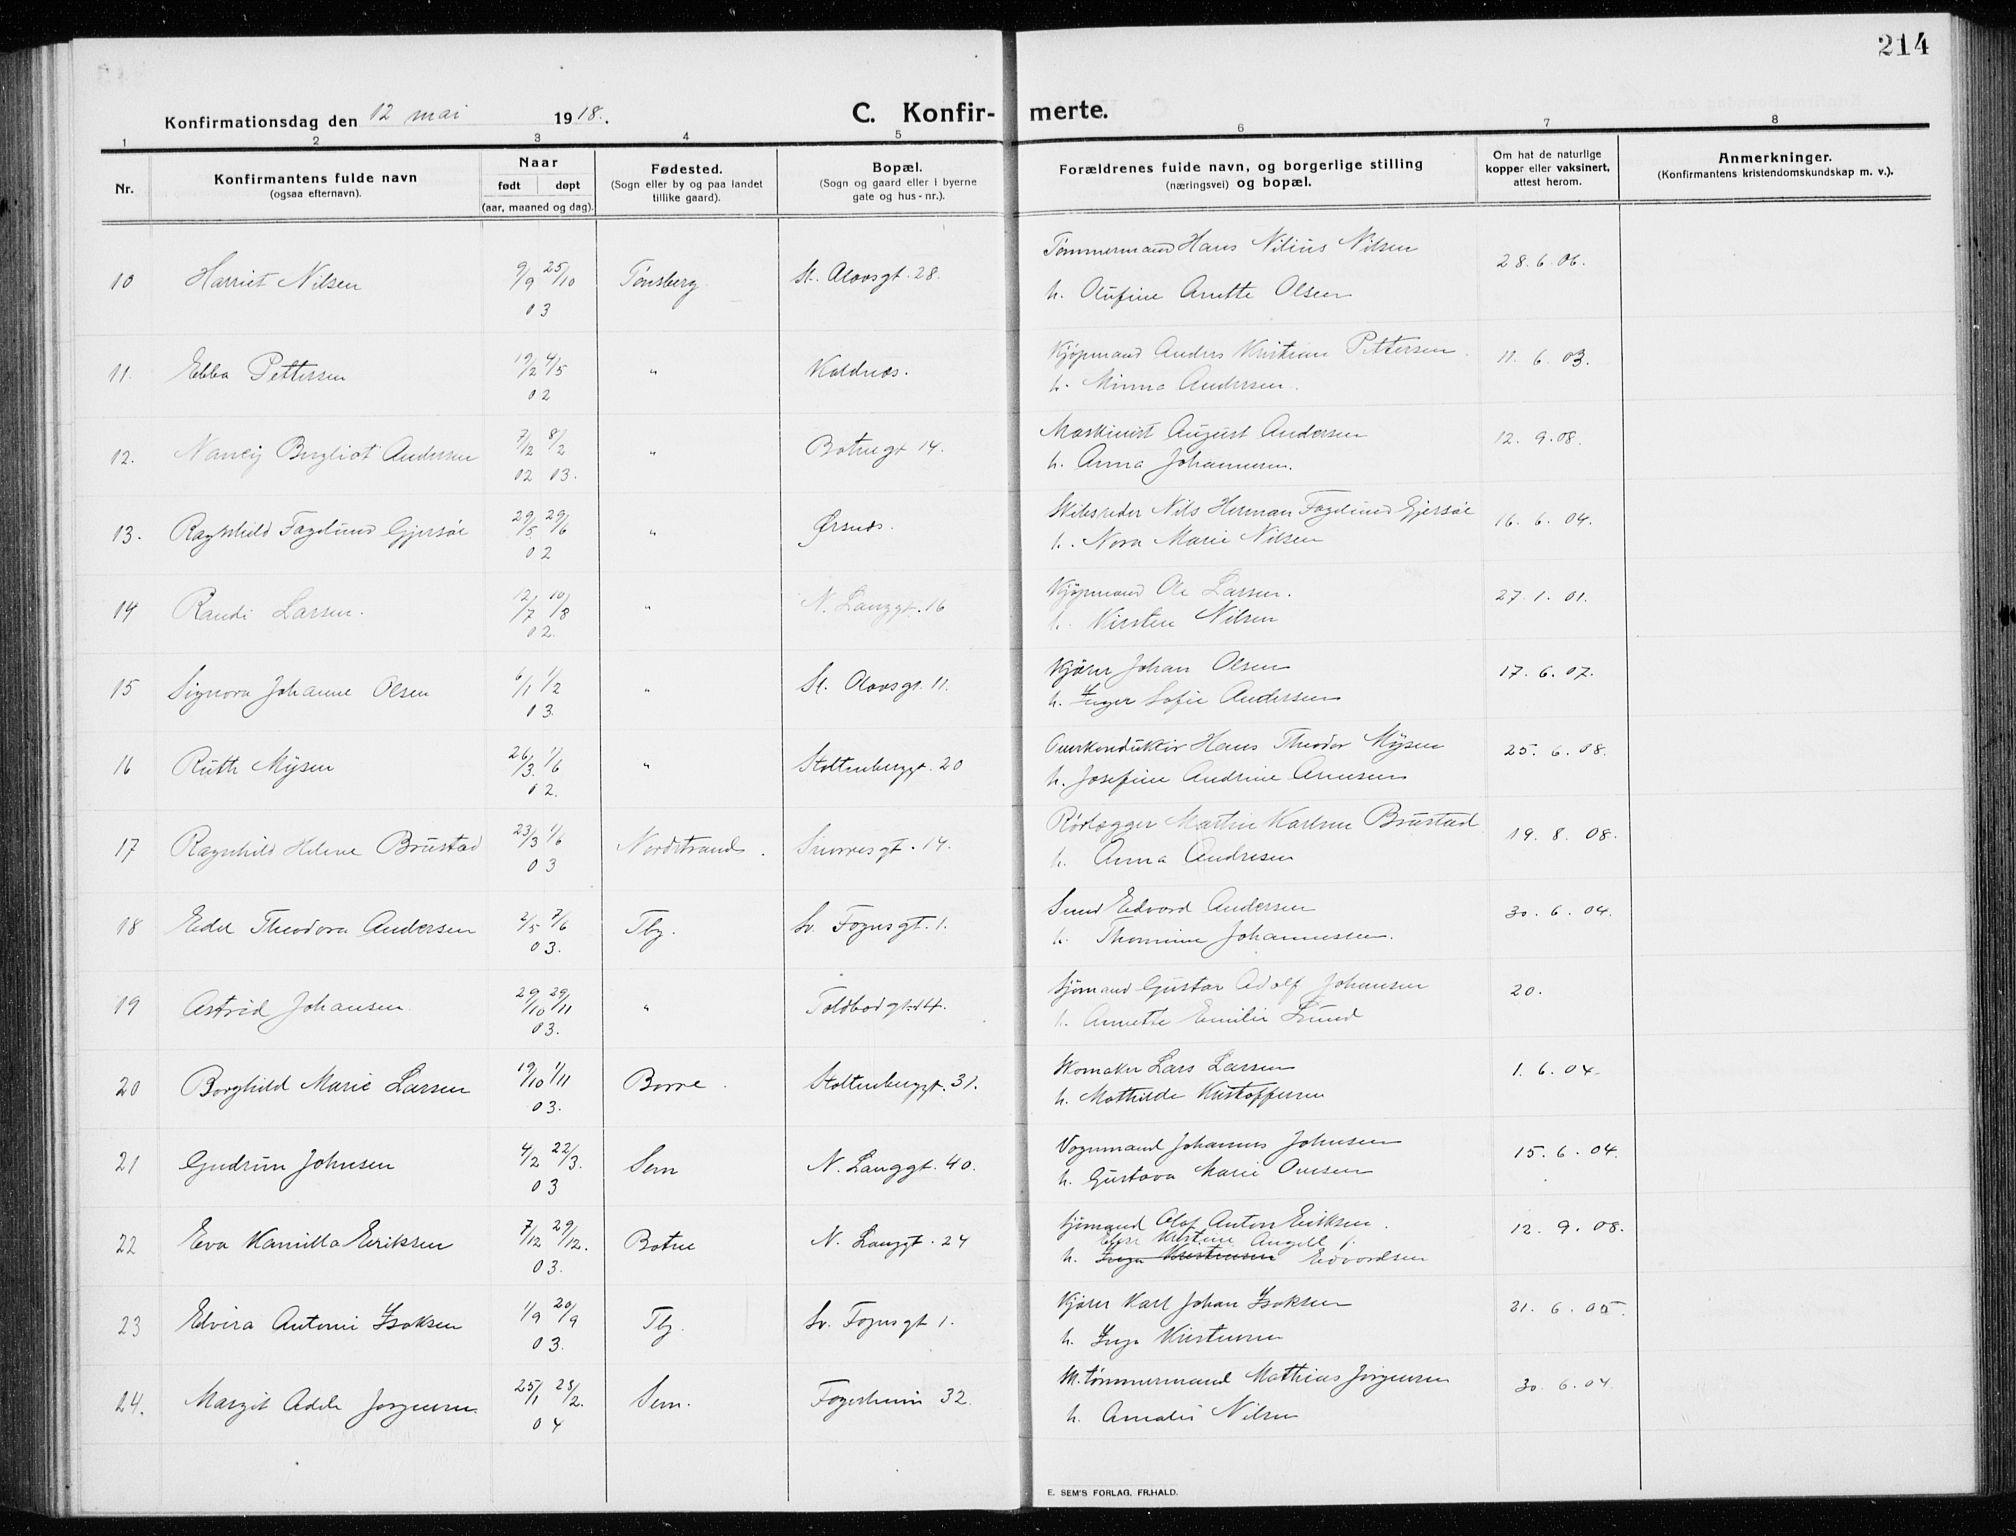 214
Konfirmationsdag den 12 mai 1918.
C. Konfir- merte.
1 2 3 4 5 6 7 8
Nr.
Konfirmantens fulde navn
(ogsaa efternavn).
Naar
født døpt
(aar, maaned og dag).
Fødested.
(Sogn eller by og paa landet
tillike gaard).
Bopæl.
(Sogn og gaard eller i byerne
gate og hus-nr.).
Forældrenes fulde navn, og borgerlige stilling
(næringsvei) og bopæl.
Om hat de naturlige
kopper eller vaksinert,
attest herom.
Anmerkninger.
(Konfirmantens kristendomskundskap m. v.).
10 Harriet Nilsen 9/9 25/10 Tønsberg St. Olavsgt. 28. Tømmermand Hans Nilius Nilsen 28.6.06.
03 h. Olufine Anette Olsen
11. Ebba Pettersen 19/2 4/5 " Kaldnæs. Kjøpmand Anders Kristian Pettersen 11.6.03.
02 h. Minna Andersen.
12. Nancy Bergliot Andersen 7/12 8/2 " Botnegt 14. Maskinist August Andersen 12.9.08.
02 03. h. Anna Johannesen.
13. Ragnhild Fagelund Gjersøe 29/5 29/6 " Ørsnes. Skibsreder Nils Herman Fagelund Gjersøe 16.6.04.
02 h. Nora Marie Nilsen
14 Randi Larsen. 12/7 10/8 " N. Langgt. 16 Kjøpmand Ole Larsen. 27.1.01.
02. h. Kirsten Nilsen
15 Signora Johanne Olsen 6/1 1/2 " St. Olavsgt. 11. Kjører Johan Olsen 17.6.07.
03. h. Inger Sofie Andersen
16 Ruth Mysen 26/3. 1/6 " Stoltenberggt. 20 Overkonduktør Hans Theodor Mysen 25.6.08.
02. h. Josefine Andrine Arnesen
17 Ragnhild Helene Brustad 23/3 1/6 Nordstrand. Snorresgt. 14. Rørlægger Martin Karlsen Brustad 19.8.08.
03 h. Anna Andresen
18 Edel Theodora Andersen 2/5 7/6 Tbg. Sv. Foynsgt. 1. Smed Edvard Andersen 30.6.04.
03. h. Thomine Johannessen.
19 Astrid Johansen. 29/10 29/11 " Toldbodgt. 14. Sjømand Gustav Adolf Johansen 20.
03. h. Annette Emilie Lund
20 Borghild Marie Larsen 19/10 1/11 Borre. Stoltenberggt. 31. Skomaker Lars Larsen 1.6.04.
03. h. Mathilde Kristoffersen
21 Gudrun Johnsen 4/2 22/3. Sem N. Langgt. 40. Vognmand Johannes Johnsen 15.6.04.
03 h. Gustava Marie Ovesen
22 Eva Kamilla Eriksen 7/12 29/12. Botne N. Langgt. 24 Sjømand Olaf Anton Eriksen. 12.9.08.
Else Kristine Angell f.
03. h. Inga Kristensen Edvardsen
23 Elvira Antonie Isaksen 1/9 20/9 Tbg. Sv. Foynsgt 1. Kjører Karl Johan Isaksen 21.6.05.
03. h. Inga Kristensen
24. Margit Adele Jørgensen. 25/1 28/2. Sem. Fagerheim 32. M. tømmermand Mathias Jørgensen 30.6.04.
04 h. Amalie Nilsen
E. SEM'S FORLAG, FR.HALD.